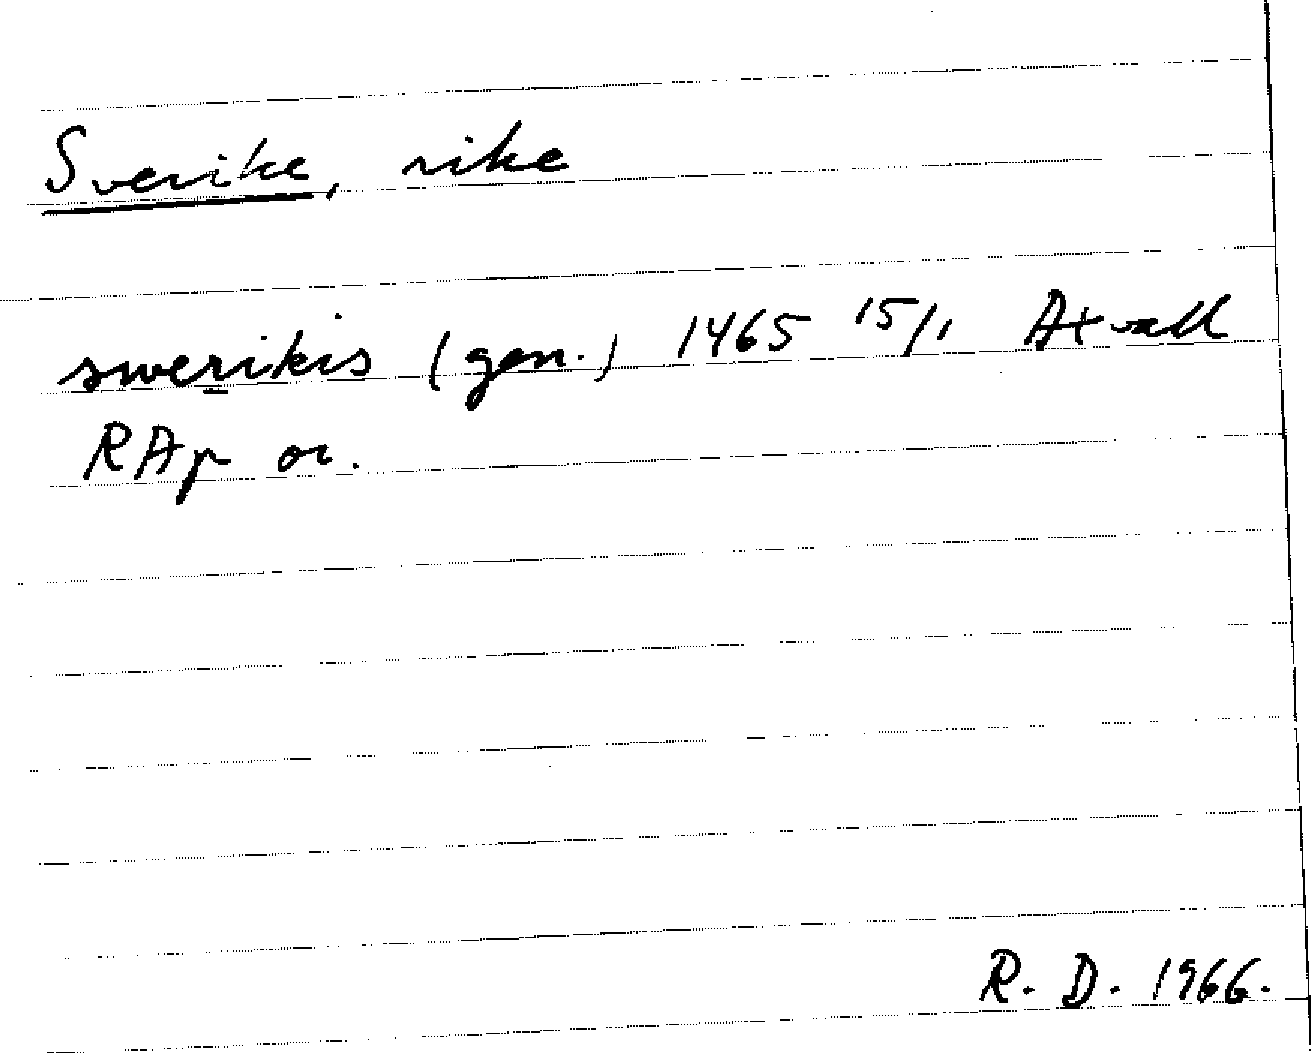 Sverike, rike
swerikis (gen.) 1465 15/1 Axvall
RAp or.
R. D. 1966.